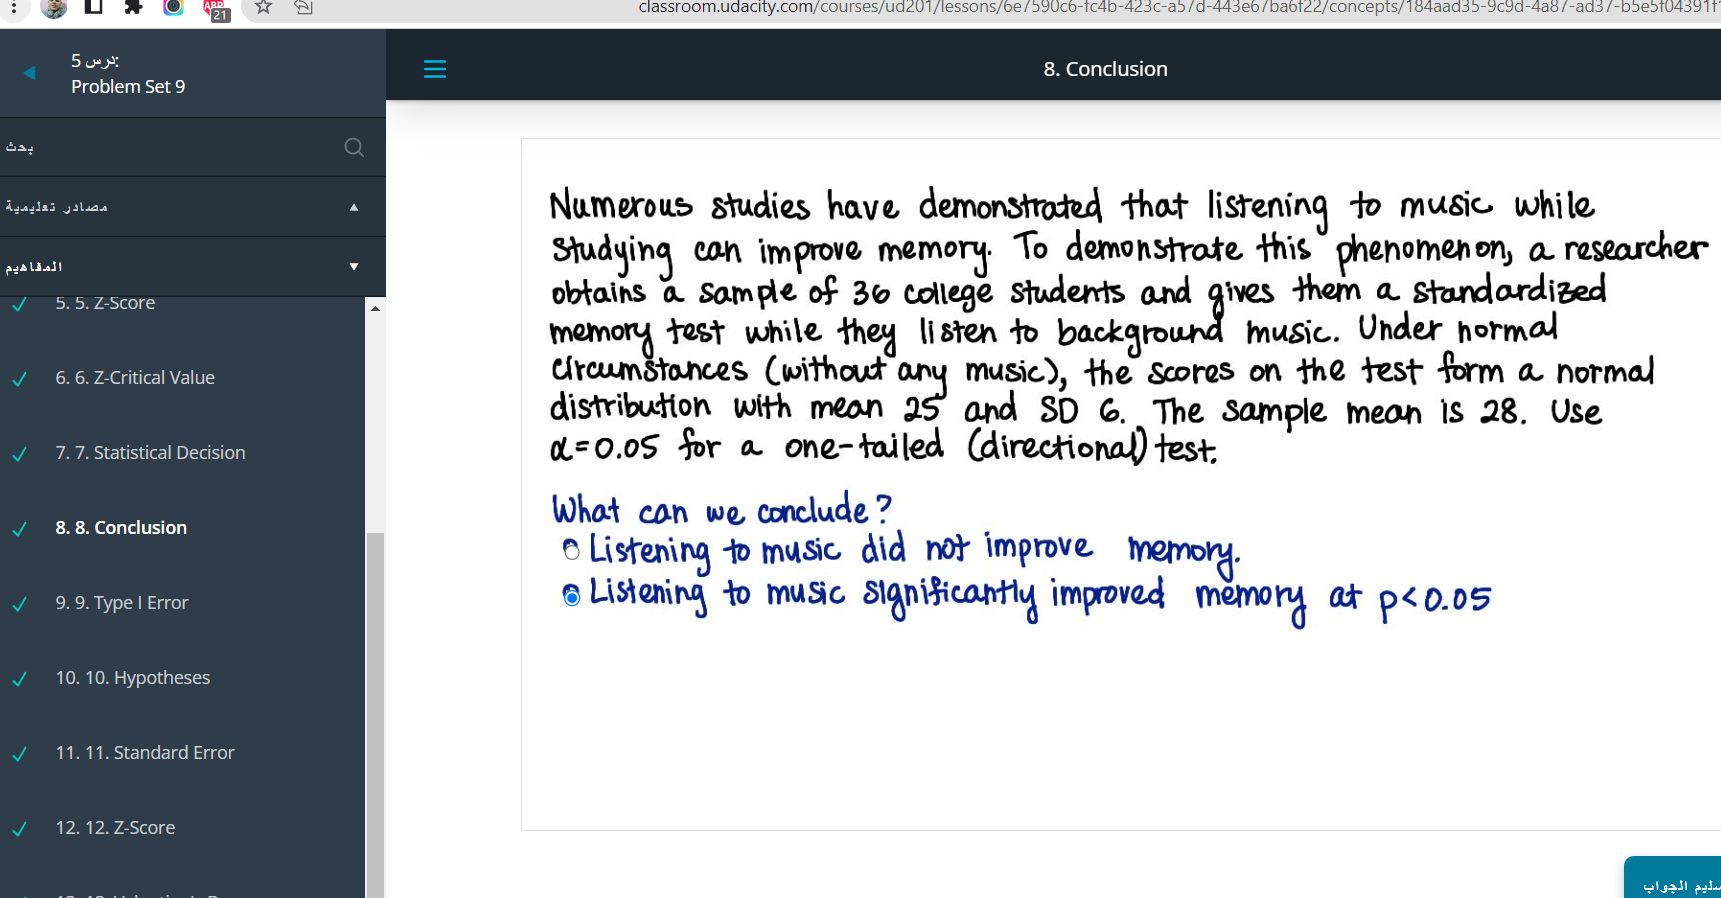 ABP
21
classroom.udacity.com/courses/ud201/lessons/6e7590c6-fc4b-423c-a57d-443e67ba6f22/concepts/184aad35-9c9d-4a87-ad37-b5e5f04391f
درس 5:
Problem Set 9
بحث
مصادر تعليمية
المفاهيم
5. 5. Z-Score
6. 6. Z-Critical Value
7. 7. Statistical Decision
8. 8. Conclusion
9. 9. Type I Error
10. 10. Hypotheses
11. 11. Standard Error
12. 12. Z-Score
8. Conclusion
Numerous studies have demonstrated that listening to music while
studying can improve memory. To demonstrate this phenomenon, a researcher
obtains a sample of 36 college students and gives them a standardized
memory test while they listen to background music. Under normal
circumstances (without any music), the scores on the test form a normal
distribution with mean 25 and SD 6. The sample mean is 28. Use
α=0.05 for a one-tailed (directional) test.
What can we conclude?
Listening to music did not improve memory.
Listening to music significantly improved memory at p<0.05
الجواب